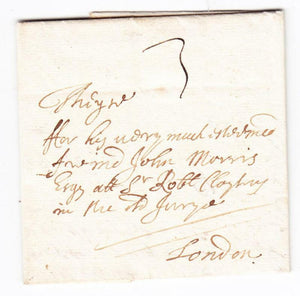 3
These
ffor his uery much esteemed
friend John Morris
Esqr att Sr Robt Claytons
in the old Jurye
London